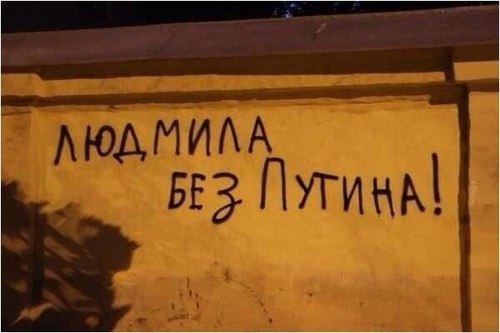 ЛЮДМИЛА
БЕЗ ПУТИНА!